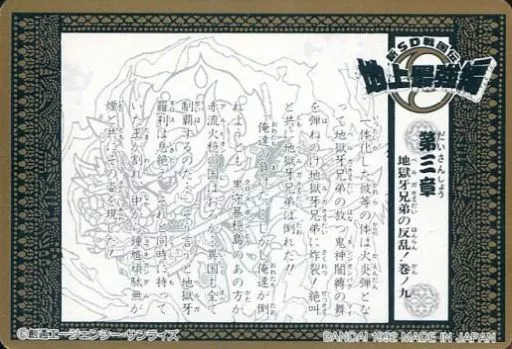 新SD戦国伝
地上最強編
第三章
だいさんしょう
地獄牙兄弟の反乱！巻ノ九
一体化した彼等の体は火炎弾とな
って地獄牙兄弟の放つ鬼神闇縛の舞
を弾ねのけ地獄牙兄弟に炸裂！絶叫
と共に地獄牙兄弟は倒れた!!
俺達の負け…しかし俺達が倒
れようとも、黒守墓穏島のあの方が
赤流火穏の国はおろか…異国も全て
制覇するのだ…そう言うと地獄牙
羅利は息絶え…それと同時に持って
いた玉が割れ、中から鍾馗頑駄無が
煙と共にその姿を現した!!
©創通エージェンシー・サンライズ
BANDAI 1992 MADE IN JAPAN